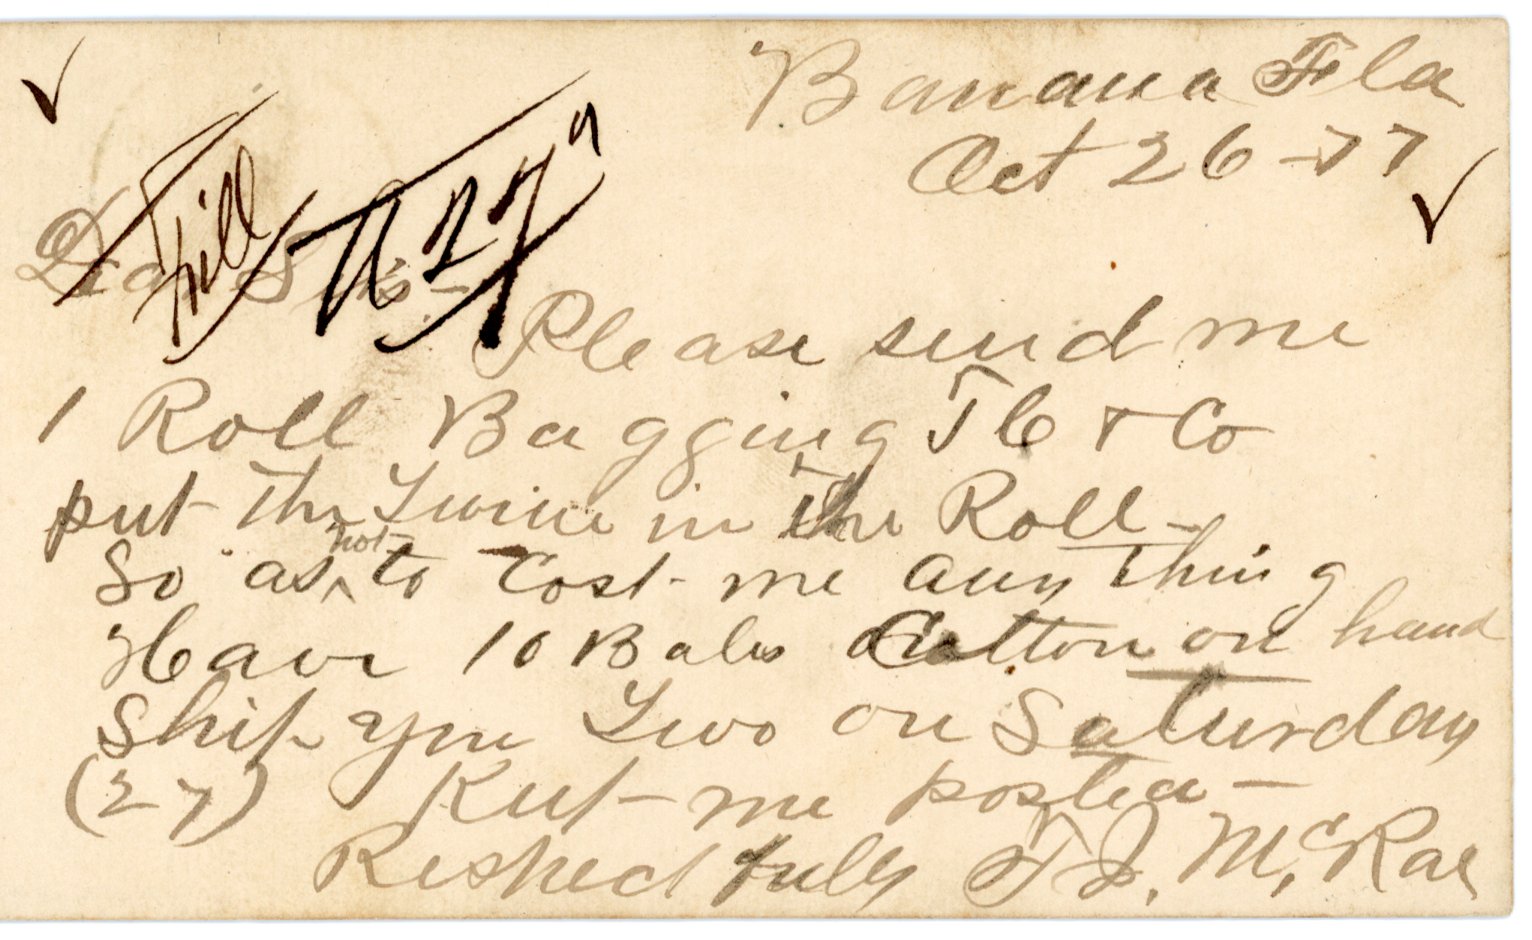 Banana Fla
Oct 26 - 77
Dear Sirs -
Please send me
1 Roll Bagging & Co
put the Twine in the Roll -
So as not to Cost me any thing
Have 10 Bales Cotton on hand
Ship you Two on Saturday
(27) Keep me posted -
Respectfully T J. McRae